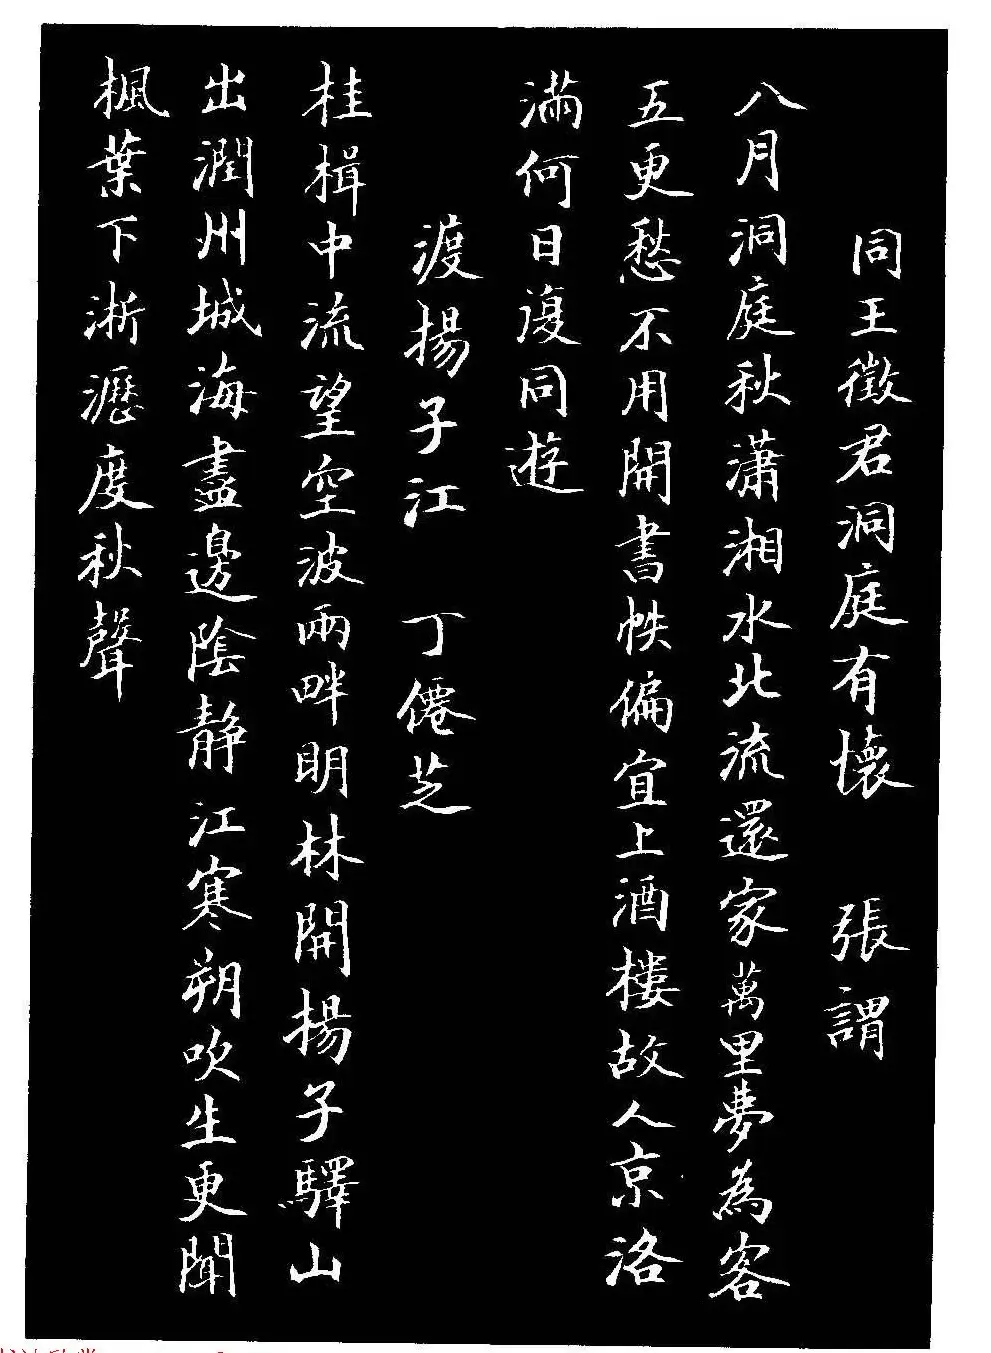 同王徵君洞庭有懷 張謂
八月洞庭秋瀟湘水北流還家萬里夢為客
五更愁不用開書帙偏宜上酒樓故人京洛
滿何日復同遊
渡揚子江 丁僊芝
桂楫中流望空波兩畔明林開揚子驛山
出潤州城海盡邊陰靜江寒朔吹生更聞
楓葉下淅瀝度秋聲